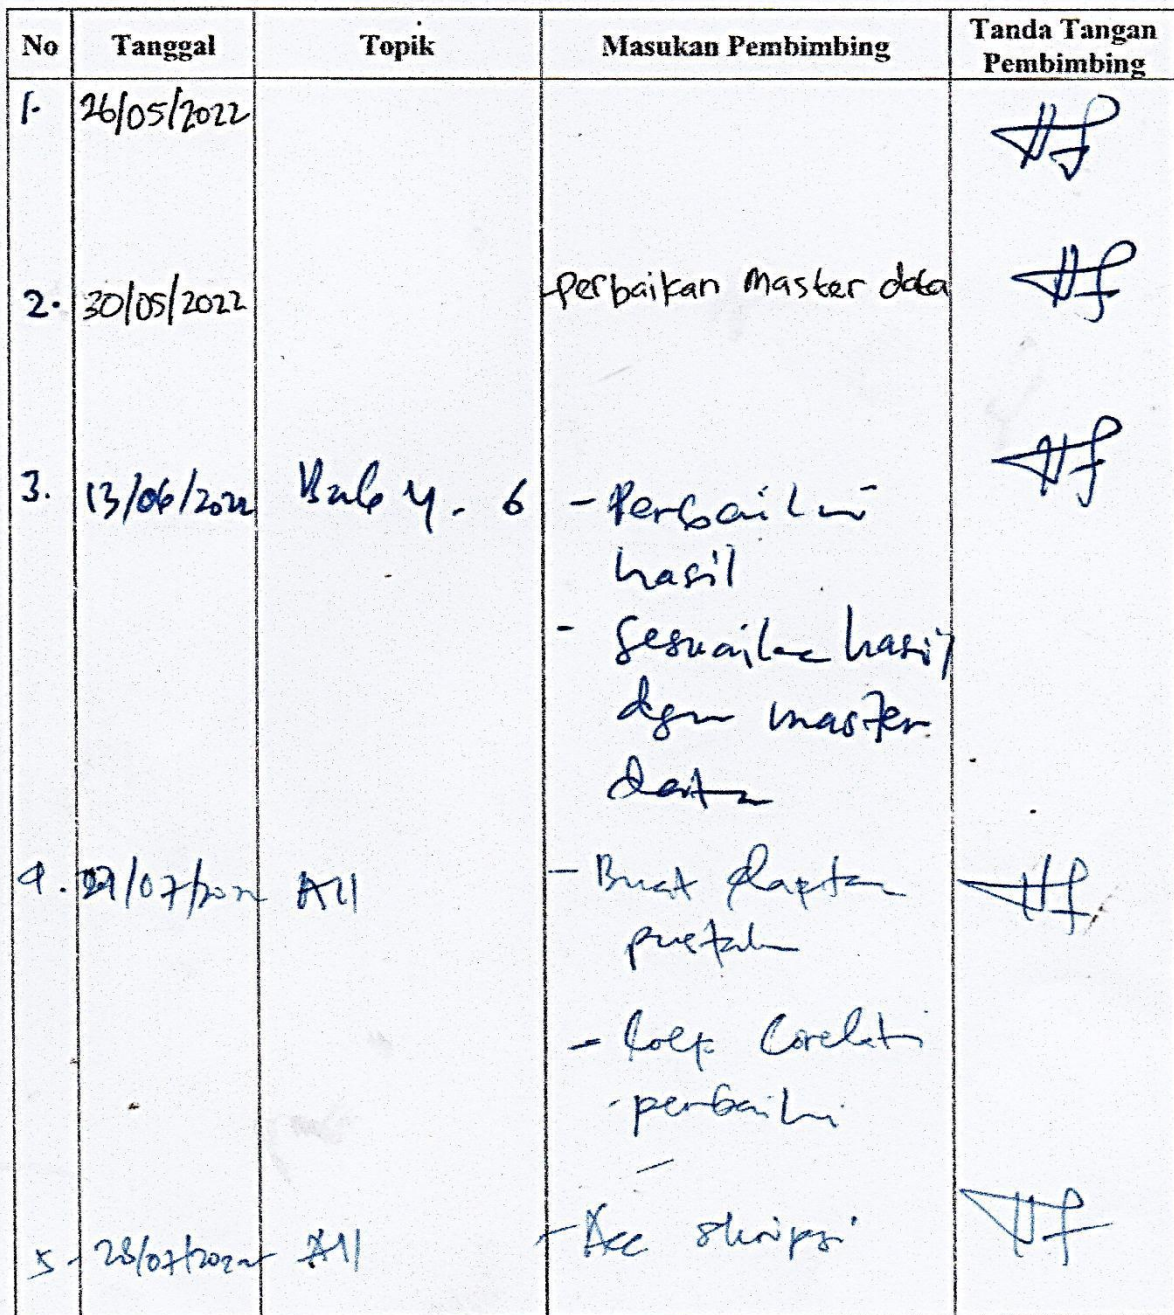 No Tanggal Topik Masukan Pembimbing Tanda Tangan Pembimbing
1. 26/05/2022
2. 30/05/2022 - Perbaikan Master data
3. 13/06/2022 Bab 4. 6 - Perbaiki
hasil
- Sesuaikan hasil
dgn master
data
4. /07/2022 All - Buat daftar
pustaka
- Koef Corelati
- perbaiki
5. 28/07/2022 All - Acc skripsi